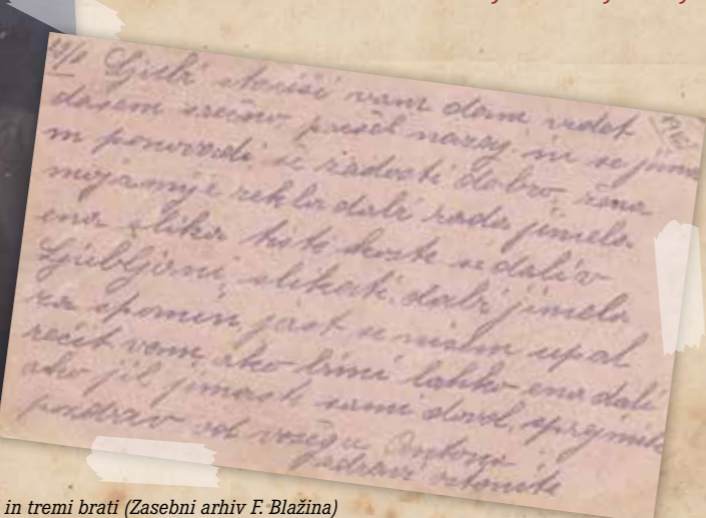 29/6 Ljubi starisi vam dam vedet
dasem srečno prišel nazaj in se jima
m povsodi se radosti dobro, žena
moja mije rekla dabi rada jimela
ena slika tiste koste se dali v
Ljubljani slikati dabi jimela
za spomin jast se nisem upal
rečit vam ako bimi lahko eno dali
ako jih jimaste sami dovol, sprejmite
pozdrav od vašega Antona
zdravi ostanite
in tremi brati (Zasebni arhiv F. Blažina)